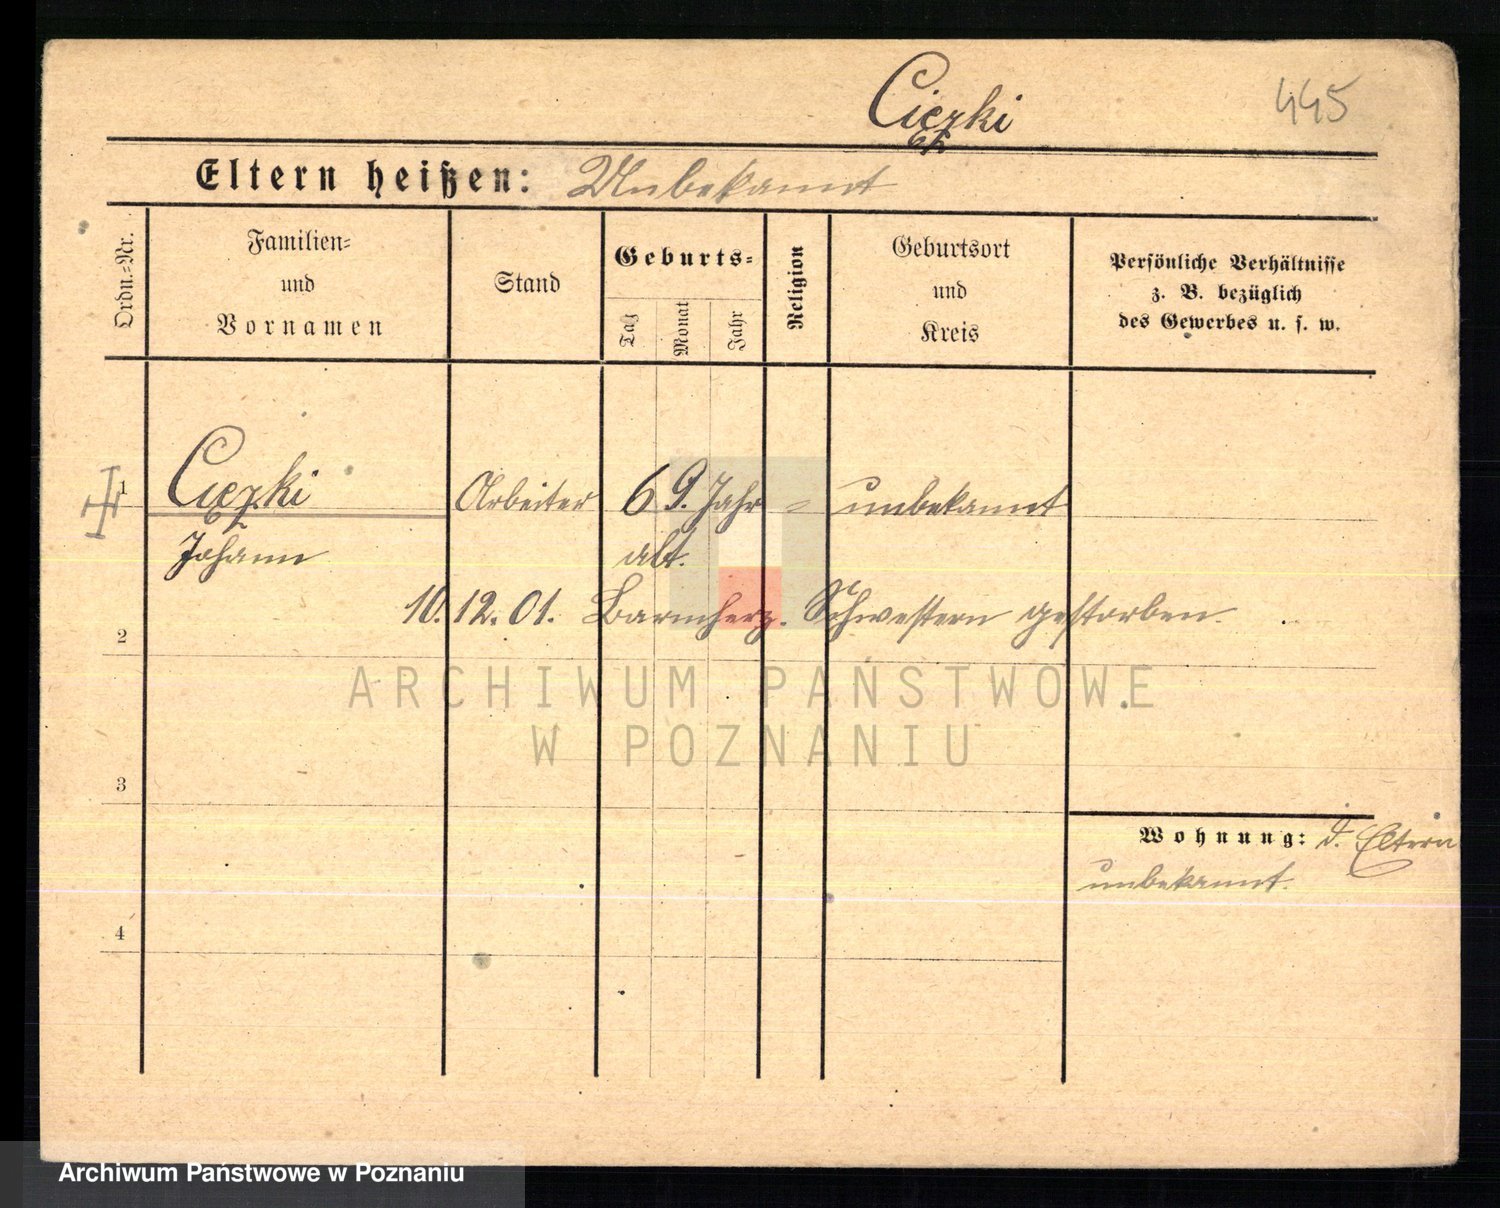 Ciezki
445
Eltern heißen: Unbekannt
Ordn.=Nr.
Familien=
und
Vornamen
Stand
Geburts=
Tag
Monat
Jahr
Religion
Geburtsort
und
Kreis
Persönliche Verhältnisse
z. B. bezüglich
des Gewerbes u. s. w.
1 Ciezki Arbeiter 69. Jahr - unbekannt
Johann alt.
10.12.01. Barmherz. Schwestern gestorben.
2
ARCHIWUM PAŃSTWOWE
W POZNANIU
3
Wohnung: d. Eltern
unbekannt.
4
Archiwum Państwowe w Poznaniu